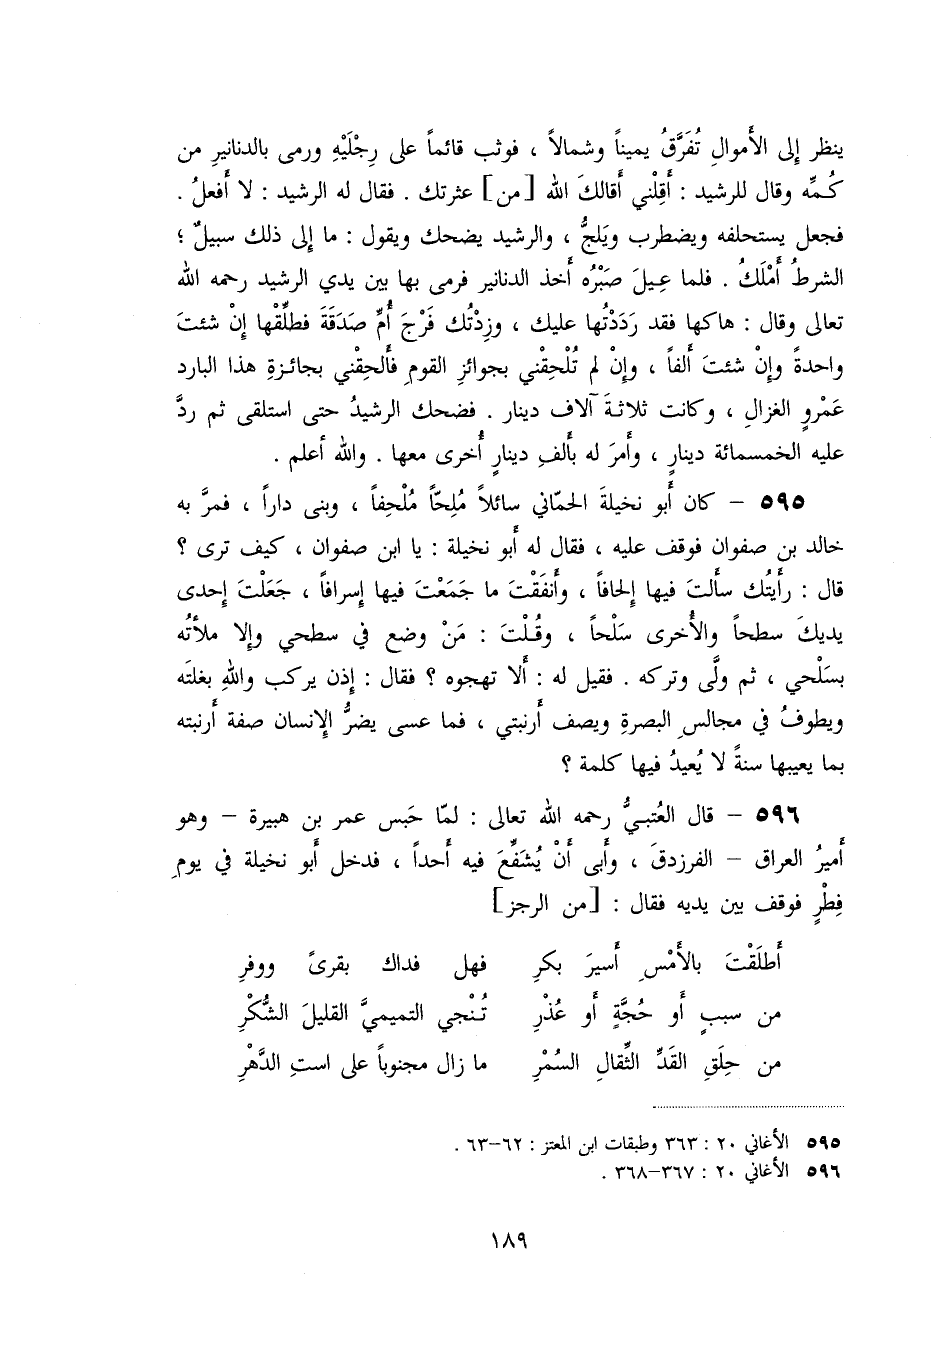 ينظر إلى الأَموالِ تُفَرَّقُ يميناً وشمالاً ، فوثب قائماً على رِجْلَيْهِ ورمى بالدنانيرِ من
كُمِّه وقال للرشيد : أَقِلْني أَقالكَ الله [من] عثرتك . فقال له الرشيد : لا أَفعلُ .
فجعل يستحلفه ويضطرب ويَلجُّ ، والرشيد يضحك ويقول : ما إلى ذلك سبيلٌ ؛
الشرطُ أَمْلَكُ . فلما عِيلَ صَبْرُه أخذ الدنانير فرمى بها بين يدي الرشيد رحمه الله
تعالى وقال : هاكها فقد رَدَدْتُها عليك ، وزِدْتُك فَرْجَ أُمِّ صَدَقَةَ فطلِّقْها إنْ شئتَ
واحدةً وإنْ شئتَ أَلفاً ، وإنْ لم تُلْحِقْني بجوائزِ القومِ فأَلحِقْني بجائزةِ هذا البارد
عَمْروٍ الغزالِ ، وكانت ثلاثةَ آلاف دينار . فضحك الرشيدُ حتى استلقى ثم ردَّ
عليه الخمسمائة دينارٍ ، وأَمرَ له بأَلفِ دينارٍ أُخرى معها . والله أعلم .
٥٩٥ – كان أَبو نخيلةَ الحمّاني سائلاً مُلِحّاً مُلْحِفاً ، وبنى داراً ، فمرَّ به
خالد بن صفوان فوقف عليه ، فقال له أَبو نخيلة : يا ابن صفوان ، كيف ترى ؟
قال : رأَيتُك سأَلتَ فيها إلحافاً ، وأَنفَقْتَ ما جَمَعْتَ فيها إسرافاً ، جَعَلْتَ إحدى
يديكَ سطحاً والأُخرى سَلْحاً ، وقُلْتَ : مَنْ وضع في سطحي وإلا ملأتُه
بسَلْحي ، ثم ولَّى وتركه . فقيل له : أَلا تهجوه ؟ فقال : إذن يركب واللهِ بغلتَه
ويطوفُ في مجالسِ البصرةِ ويصف أَرنبتي ، فما عسى يضرُّ الإنسان صفة أَرنبته
بما يعيبها سنةً لا يُعيدُ فيها كلمة ؟
٥٩٦ – قال العُتبيُّ رحمه الله تعالى : لمّا حَبس عمر بن هبيرة – وهو
أَميرُ العراق – الفرزدقَ ، وأَبى أَنْ يُشَفِّعَ فيه أَحداً ، فدخل أَبو نخيلة في يومِ
فِطْرٍ فوقف بين يديه فقال : [من الرجز]
أَطلَقْتَ بالأَمْسِ أَسيرَ بكرِ فهل فداك بقرىً ووفرِ
من سببٍ أَو حُجَّةٍ أَو عُذْرِ تُنْجي التميميَّ القليلَ الشُّكْرِ
من حِلَقِ القَدِّ الثِّقالِ السُمْرِ ما زال مجنوباً على استِ الدَّهْرِ
٥٩٥ الأغاني ٢٠ : ٣٦٣ وطبقات ابن المعتز : ٦٢–٦٣ .
٥٩٦ الأغاني ٢٠ : ٣٦٧–٣٦٨ .
١٨٩